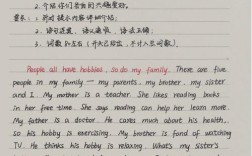 2. 介绍他们各自的兴趣爱好。
要求：1. 可适
2. 语句通顺，语法正确；
3. 词数80左右（开头已给出，不计入总词数）
People all have hobbies, so do my family. There are five
people in my family — my parents, my brother, my sister
and I. My mother is a teacher. She likes reading books
in her free time. She says reading can help her learn more.
My father is a doctor. He cares much about his health,
so his hobby is exercising. My brother is fond of watching
TV. He thinks his hobby is relaxing. What's my sister's